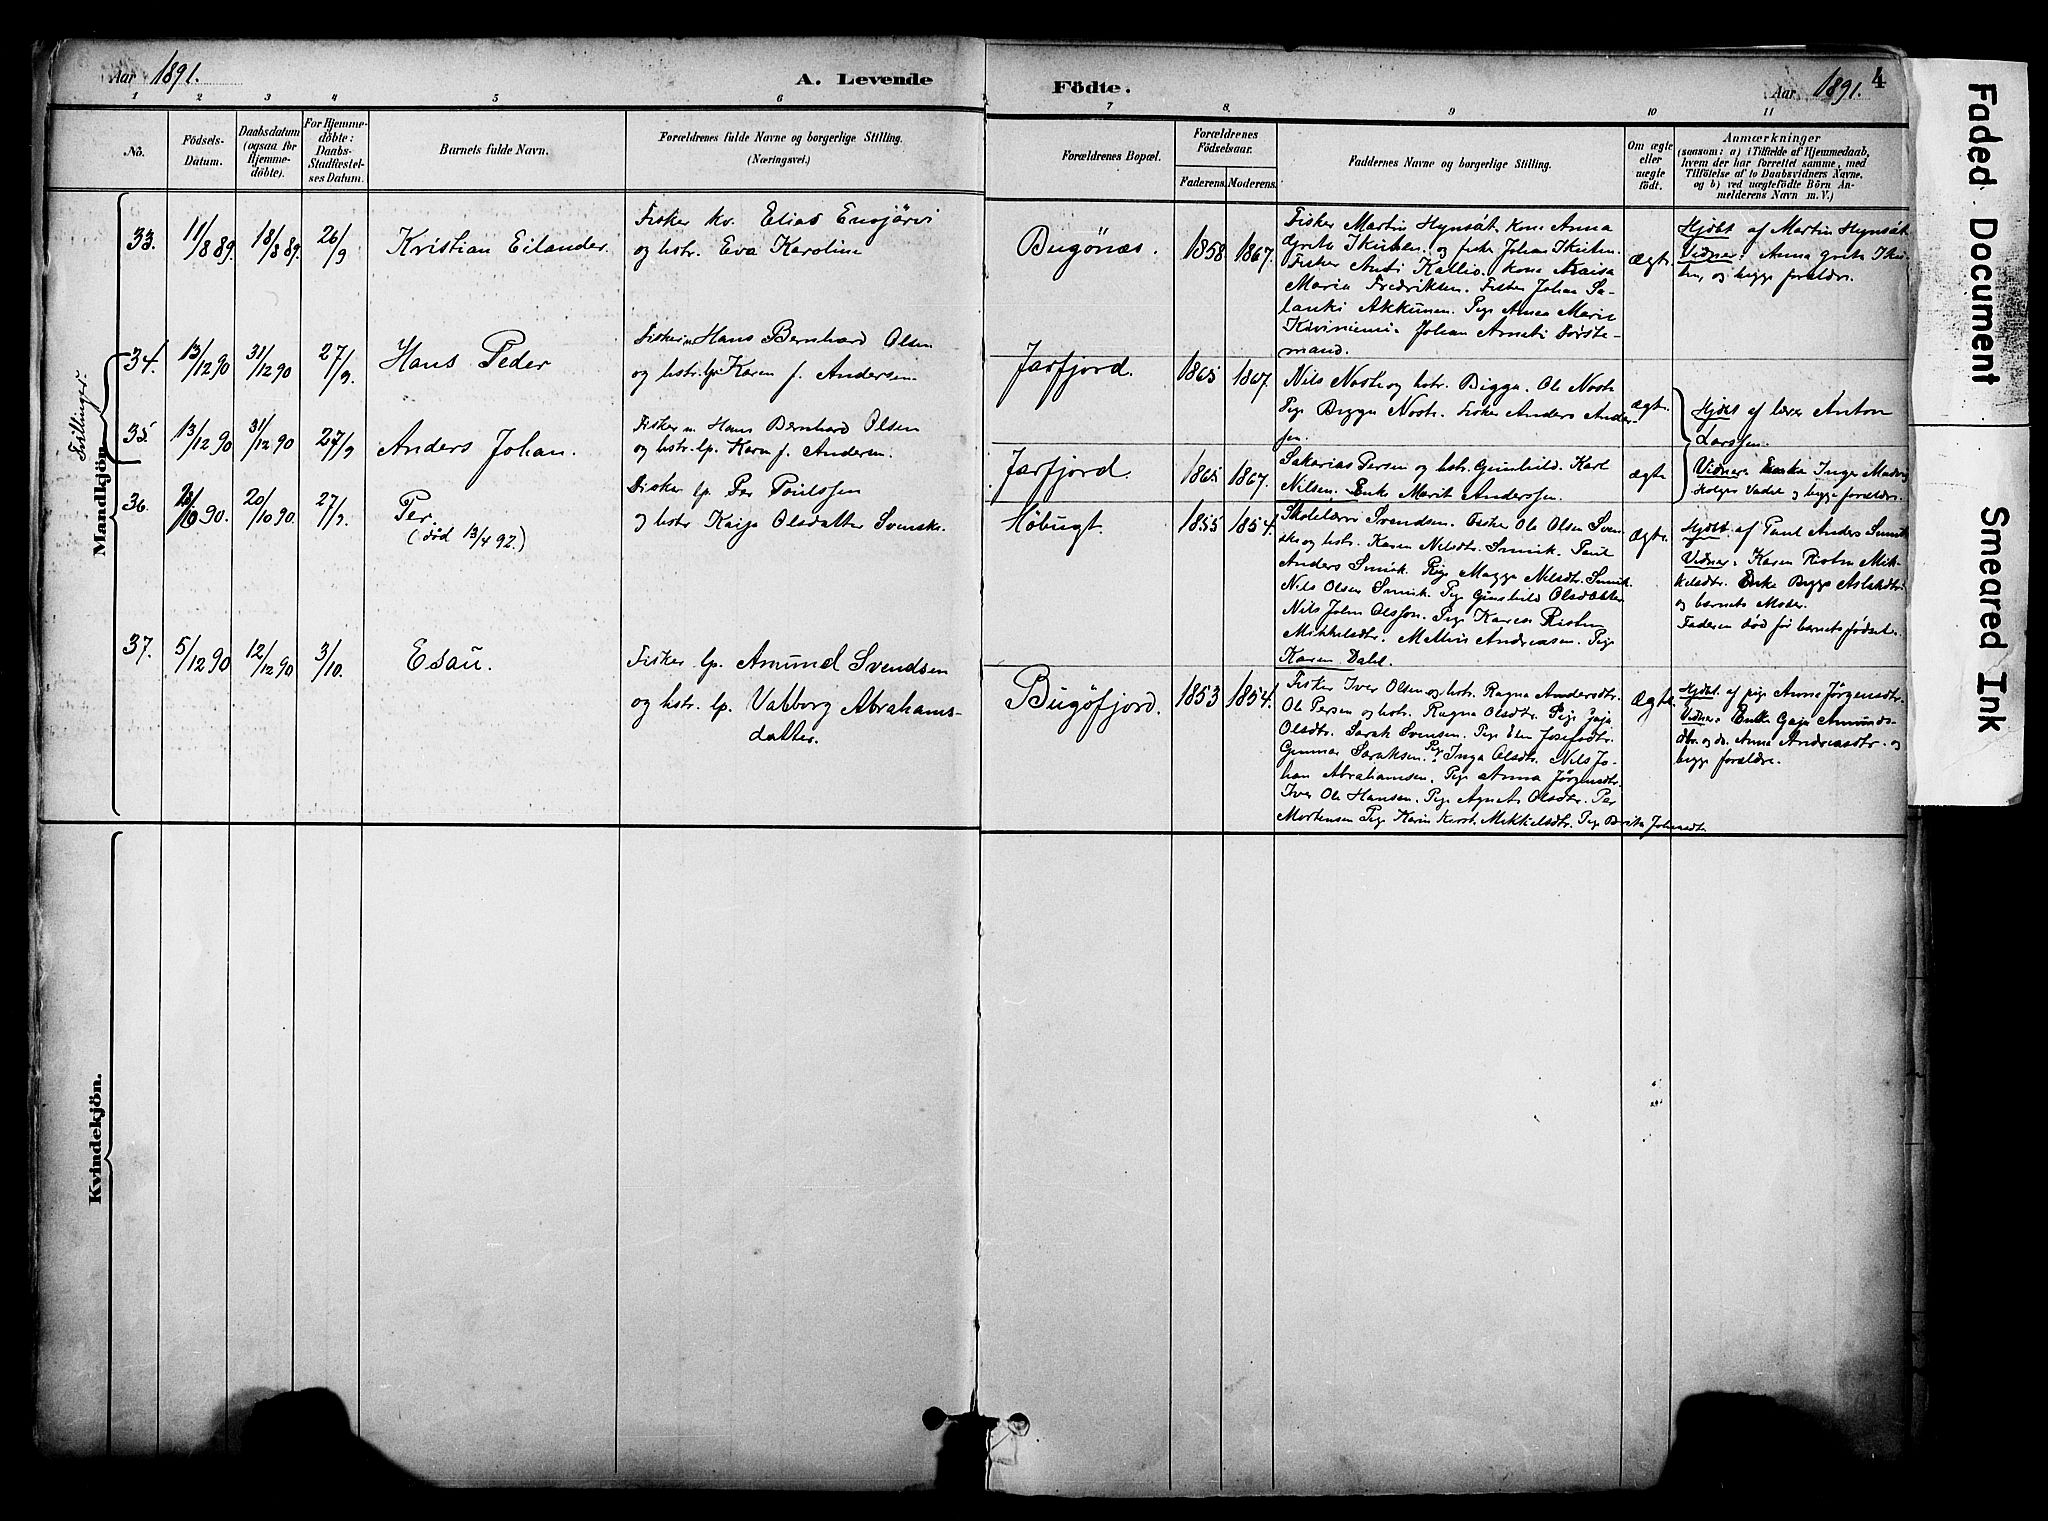 Aar 1891.
A. Levende
Födte.
Aar 1891.
4
1 2 3 4 5 6 7 8. 9 10 11
No.
Födsels-
Datum.
Daabsdatum
(ogsaa for
Hjemme-
döbte).
For Hjemme-
döbte:
Daabs-
Stadfæstel-
ses Datum.
Barnets fulde Navn.
Forældrenes fulde Navne og borgerlige Stilling.
(Næringsvei.)
Forældrenes Bopæl.
Forældrenes
Födselsaar.
Faderens. Moderens.
Faddernes Navne og borgerlige Stilling.
Om ægte
eller
uægte
födt.
Anmærkninger
(saasom: a) i Tilfælde af Hjemmedaab,
hvem der har forrettet samme, med
Tilföielse af to Daabsvidners Navne,
og b) ved uægtefödte Börn An-
melderens Navn m. V.)
Mandkjön.
Tvillinger.
33. 11/8 89. 18/8 89. 26/9 Kristian Eilander.
Fisker kv. Elias Ensjärvi
og hstr. Eva Karoline
Bugönæs. 1858 1867.
Fisker Martin Hynsät. kone Anna
Greta og fisker Johan
Fisker Anti Kallio. kona Kaisa
Maria Fredriksen. Fisker Johan Sa-
lanki Akkunen. Pige Anna Marie
Kiviniemi. Johan
mand.
ægte.
Hjdbt af Martin Hynsät.
Vidner: Anna Greta
og begge forældre.
34. 13/12 90 31/12 90 27/9. Hans Peder
Fisker n. Hans Bernhard Olsen
og hstr. lp. Karen f. Andersen
Jarfjord. 1865 1867.
Nils og hstr. Bigga. Ole
Pige Bigga Fisker Anders Ander-
sen.
ægte.
Hjdbt af lærer Anton
Larssen.
35. 13/12 90 31/12 90 27/9 Anders Johan.
Fisker n. Hans Bernhard Olsen
og hstr. lp. Karen f. Andersen.
Jarfjord. 1865 1867.
Sakarias Persen og hstr. Gunhild. Karl
Nilsen. Enke Marit Anderssen.
ægte
Vidner: Enke Inger
og begge forældre.
36. 10 90. 20/10 90. 27/9. Per.
(död 13/4 92.)
Fisker lp. Per Poulssen
og hstr Kaija Olsdatter Svensk.
Höbugt. 1855 1854.
Skolelærer Svendsen. Fisker Ole Olsen Sven-
ske og hstr. Karen Nilsdtr. Smuk. Paul
Anders Smuk. Pige Magga Nilsdtr. Smuk
Nils Olsen Smuk. Pige Gunhild Olsdatter
Nils John Olsson. Pige Karen Risten
Mikkelsdtr. Mathis Andreasen. Pige
Karen Dahl.
ægte.
Hjdbt. af Paul Anders Smuk
Vidner: Karen Risten Mik-
kelsdtr. Enke Bigga Aslaksdtr.
og barnets Moder.
Faderen död för barnets födsel.
37. 5/12 90 12/12 90 3/10. Esau.
Fisker lp. Amund Svendsen
og hstr. lp. Valborg Abrahams-
datter.
Bugöfjord. 1853 1854.
Fisker Iver Olsen og hstr. Ragna Andersdtr.
Ole Persen og hstr. Ragna Olsdtr. Pige Gaja
Olsdtr. Sarak Svensen. Pige Elen Josefsdtr.
Gunnar Saraksen. Pige Inga Olsdtr. Nils Jo-
han Abrahamsen. Pige Anna Jörgensdtr.
Iver Ole Hansen. Pige Agnet Olsdtr. Per
Mortensen Pige Karin Kirst. Mikkelsdtr. Pige Brita Johnsdtr.
ægte.
Hjdbt. af pige Anna Jörgensdtr.
Vidner: Enke Gaja Amunds-
dtr. og do. Anna Andreasdtr. og
begge forældre.
Kvindekjön.
Faded Document
Smeared Ink